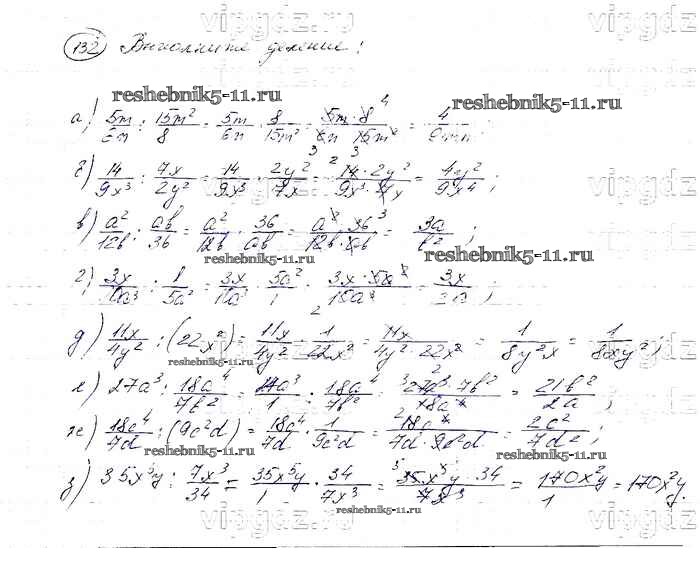 vipgdz
132 Выполните деление:
reshebnik5-11.ru
а) 5m/6n : 15m²/8 = 5m/6n · 8/15m² = 5m·8/6n·15m² = 4/9mn;
reshebnik5-11.ru
б) 14/9x³ : 7x/2y² = 14/9x³ · 2y²/7x = 14·2y²/9x³·7x = 4y²/9x⁴;
в) a²/12b : ab/36 = a²/12b · 36/ab = a²·36/12b·ab = 3a/b²;
reshebnik5-11.ru
reshebnik5-11.ru
г) 3x/10a³ : 1/5a² = 3x/10a³ · 5a²/1 = 3x·5a²/10a³ = 3x/2a;
vipgdz
д) 11x/4y² : (22x²) = 11x/4y² · 1/22x² = 11x/4y²·22x² = 1/8y²x = 1/8xy²;
reshebnik5-11.ru
е) 27a³ : 18a⁴/7b² = 27a³/1 : 18a⁴/7b² = 27a³·7b²/18a⁴ = 21b²/2a;
ж) 18c⁴/7d : (9c²d) = 18c⁴/7d · 1/9c²d = 18c⁴/7d·9c²d = 2c²/7d²;
reshebnik5-11.ru
з) 35x⁵y : 7x³/34 = 35x⁵y/1 · 34/7x³ = 35x⁵y·34/7x³ = 170x²y/1 = 170x²y.
reshebnik5-11.ru
vipgdz